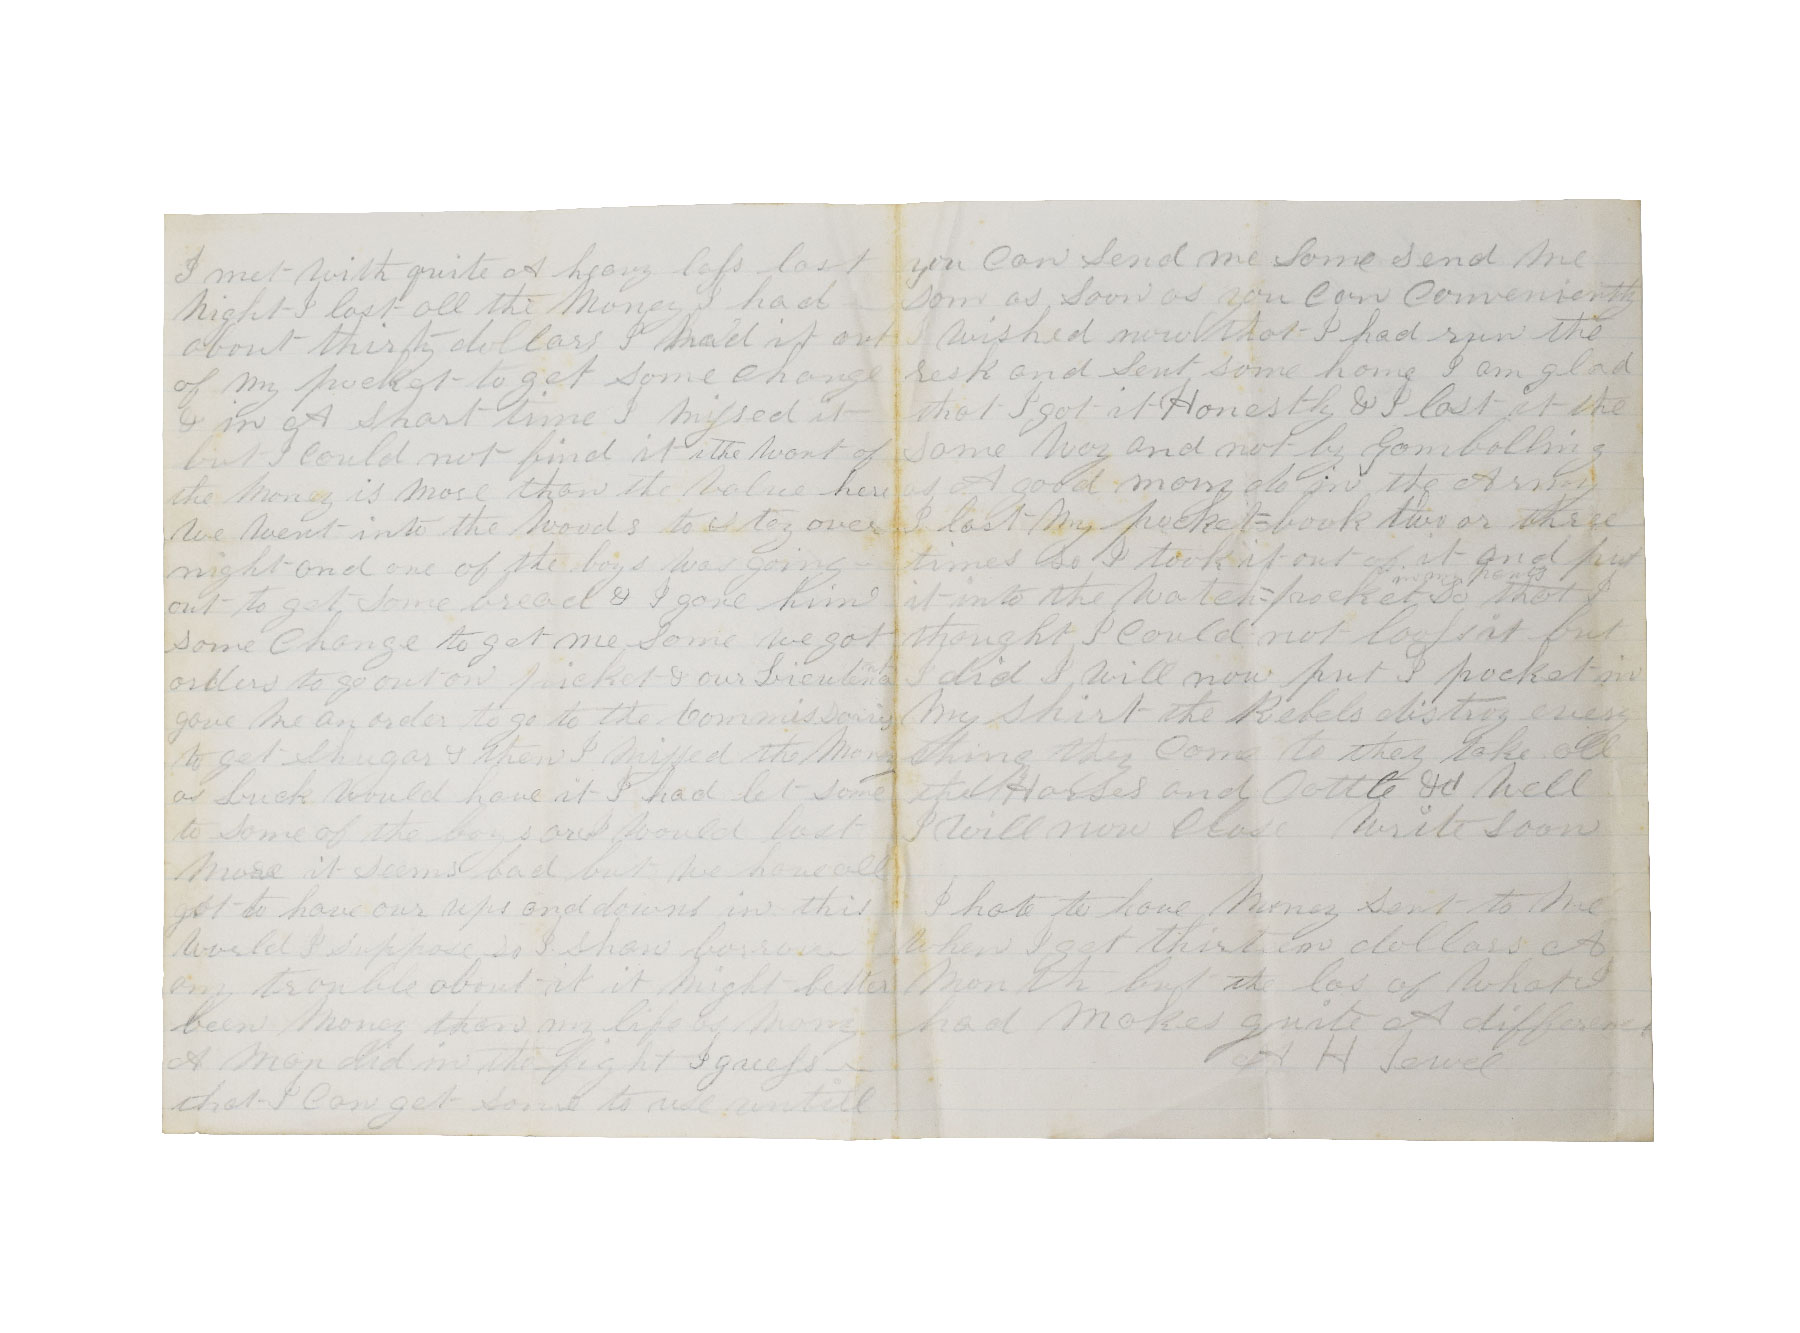 I met with quite A heavy loss last
Night I lost all the Money I had
about thirty dollars I had it out
of My pocket to get some change
& in A Short time I Missed it
but I could not find it the Want of
the Money is More than the Value here
We Went into the Woods to stay over
night and one of the boys was going
out to get some bread & I gave him
some Change to get me some we got
orders to go out on picket & our Lieutenant
gave me an order to go to the Commissary
to get Shugar & then I Missed the Mony
as luck Would have it I had let some
to some of the boys or I Would lost
More it seems bad but We have all
got to have our ups and downs in this
World I suppose so I shan borrow
any trouble about it it Might better
been Money than my life as Many
A Man did in the fight I guess
that I Can get some to use untill
you Can Send me Some Send Me
Som as Soon as you Can Conveniently
I wished now that I had run the
resk and Sent some home I am glad
that I got it Honestly & I lost it the
same Way and not by Gambolling
as A good many do in the Army
I lost My pocket=book two or three
times So I took it out of it and put
in my pants
it into the Watch=pocket so that I
thought I Could not loose it but
I did I Will now put I pocket in
My Shirt the Rebels distroy every
thing they Come to they take all
the Horses and Cattle &c Well
I Will now Close Write Soon
I hate to have Money Sent to Me
When I get thirten dollars A
Month but the los of What I
had Makes quite A difference
A H Jewel